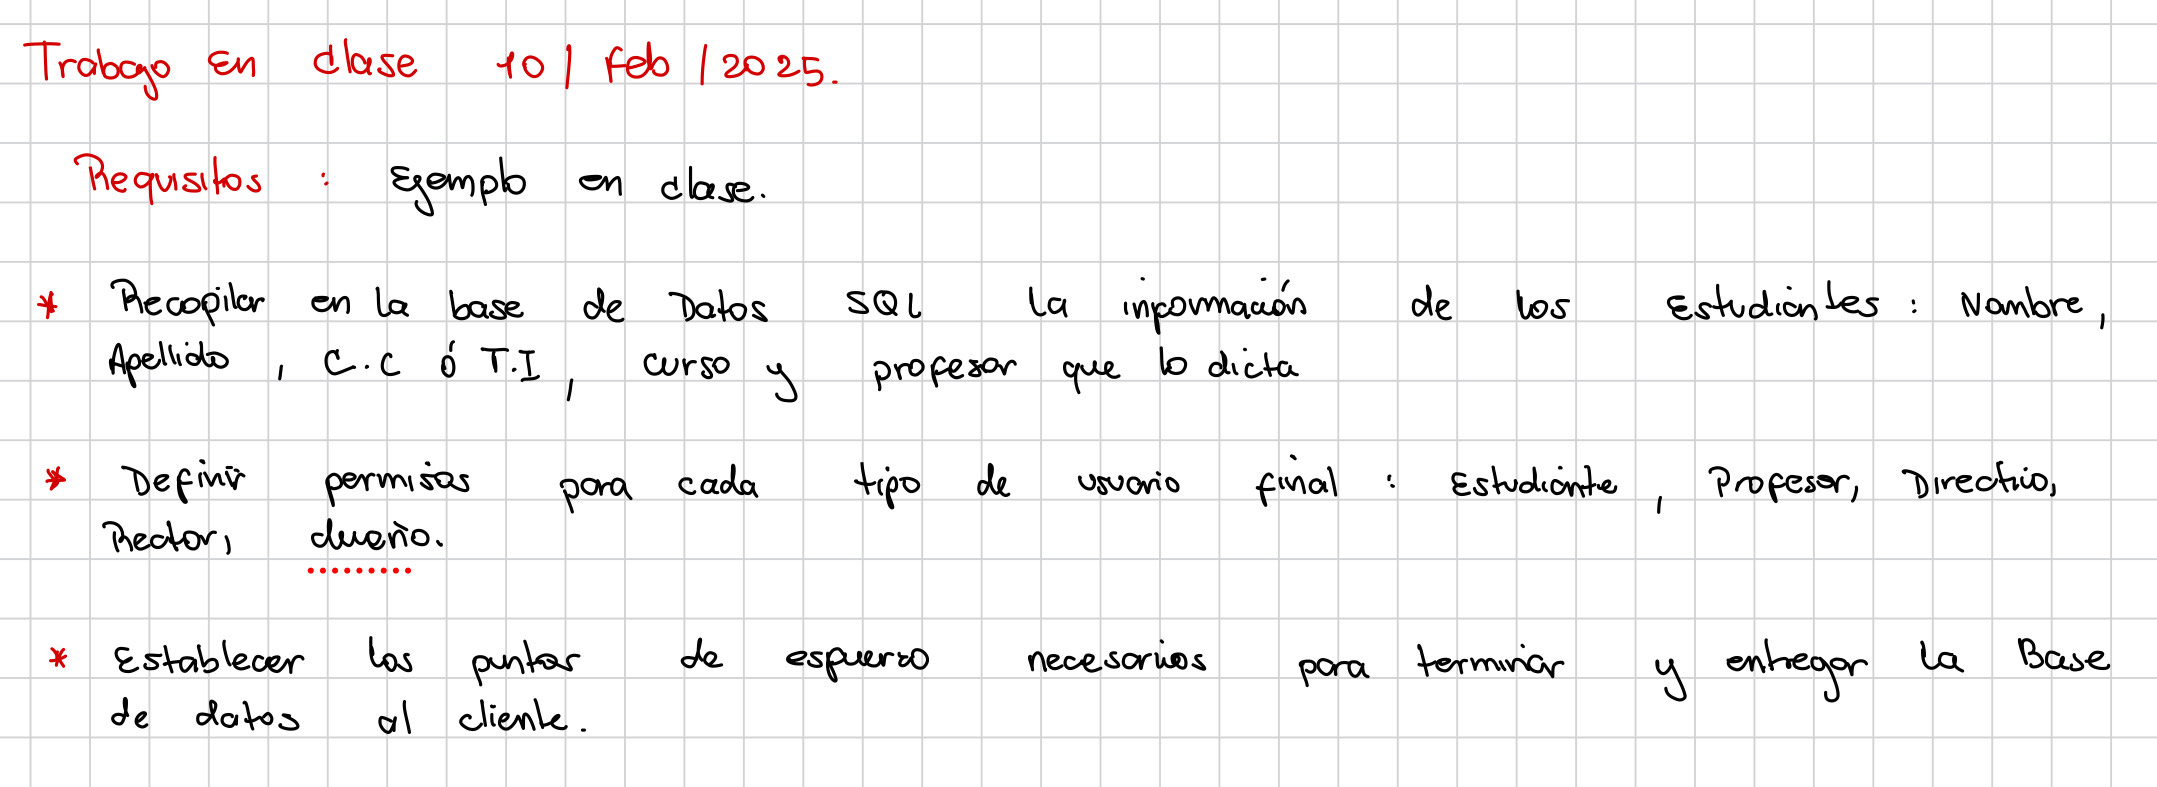 Trabajo en clase 10 / Feb / 2025.
Requisitos : Ejemplo en clase.
* Recopilar en la base de Datos SQL la información de los Estudiantes : Nombre,
Apellido , C.C ó T.I , curso y profesor que lo dicta
* Definir permisos para cada tipo de usuario final : Estudiante , Profesor, Directivo,
Rector, dueño.
* Establecer los puntos de esfuerzo necesarios para terminar y entregar la Base
de datos al cliente.